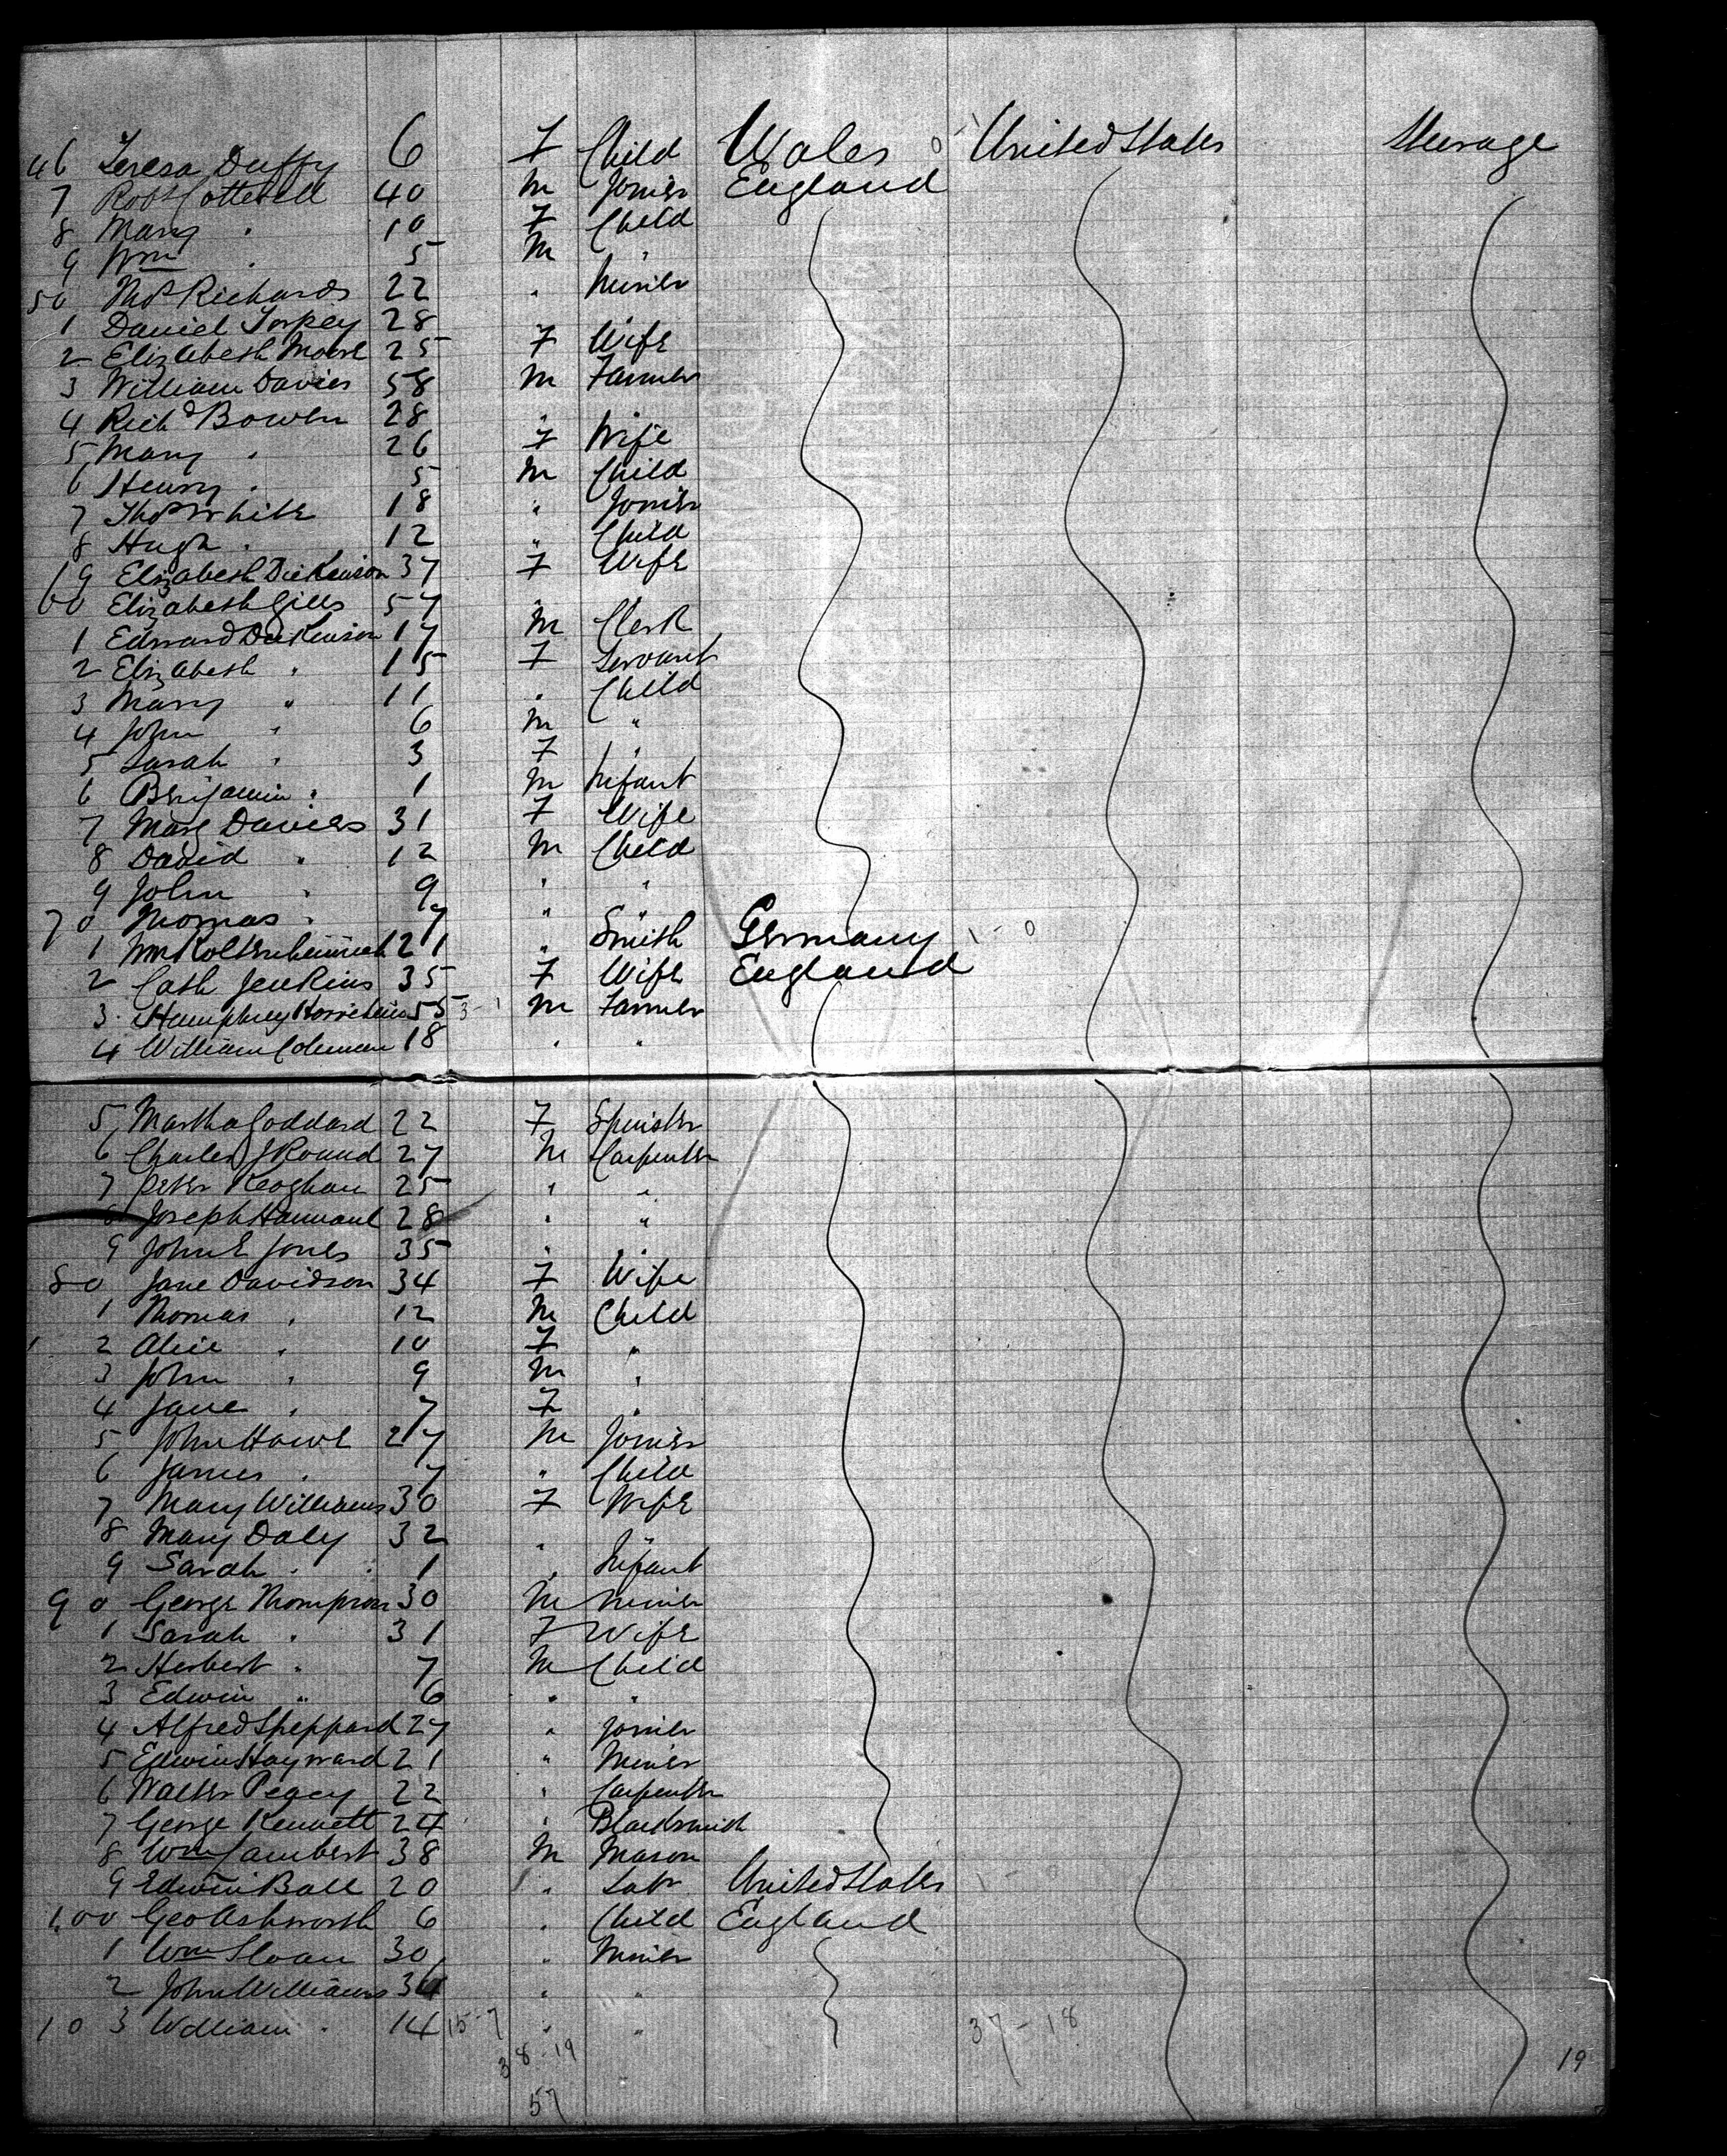 46 Teresa Duffy 6 F Child Wales 0 United States Steerage
7 Robt Cotterell 40 M Joiner England
8 Mary " 10 F Child
9 Wm " 5 M "
50 Thos Richards 22 " Miner
1 Daniel Torpey 28 " "
2 Elizabeth Moore 25 F Wife
3 William Davies 58 M Farmer
4 Richd Bowen 28 " "
5 Mary " 26 F Wife
6 Henry " 5 M Child
7 Thos White 18 " Joiner
8 Hugh " 12 " Child
9 Elizabeth Dickenson 37 F Wife
60 Elizabeth Gills 57 " "
1 Edward Dickenson 17 M Clerk
2 Elizabeth " 15 F Servant
3 Mary " 11 " Child
4 John " 6 M "
5 Sarah " 3 F "
6 Benjamin " 1 M Infant
7 Mary Davies 31 F Wife
8 David " 12 M Child
9 John " 9 " "
70 Thomas " 7 " "
1 Wm 21 " Smith Germany 1-0
2 Cath Jenkins 35 F Wife England
3 Humphrey 55 3-1 M Farmer
4 William Coleman 18 " "
5 Martha Goddard 22 F Spinster
6 Charles J Round 27 M Carpenter
7 Peter Keoghan 25 " "
8 Joseph Hannant 28 " "
9 John E Jones 35 " "
80 Jane Davidson 34 F Wife
1 Thomas " 12 M Child
2 Alice " 10 F "
3 John " 9 M "
4 Jane " 7 F "
5 John Howe 27 M Joiner
6 James " 7 " Child
7 Mary Williams 30 F Wife
8 Mary Daly 32 " "
9 Sarah " 1 " Infant
90 George Thompson 30 M Miner
1 Sarah " 31 F Wife
2 Herbert " 7 M Child
3 Edwin " 6 " "
4 Alfred Sheppard 27 " Joiner
5 Edwin Hayward 21 " Miner
6 Walter Pegey 22 " Carpenter
7 George Kennett 24 " Blacksmith
8 Wm Lambert 38 M Mason
9 Edwin Ball 20 " Labr United States 1-
100 Geo Ashworth 6 " Child England
1 Wm Sloan 30 " Miner
2 John Williams 36 " "
103 William " 14 15-7 " " 37-18
38-19 19
57